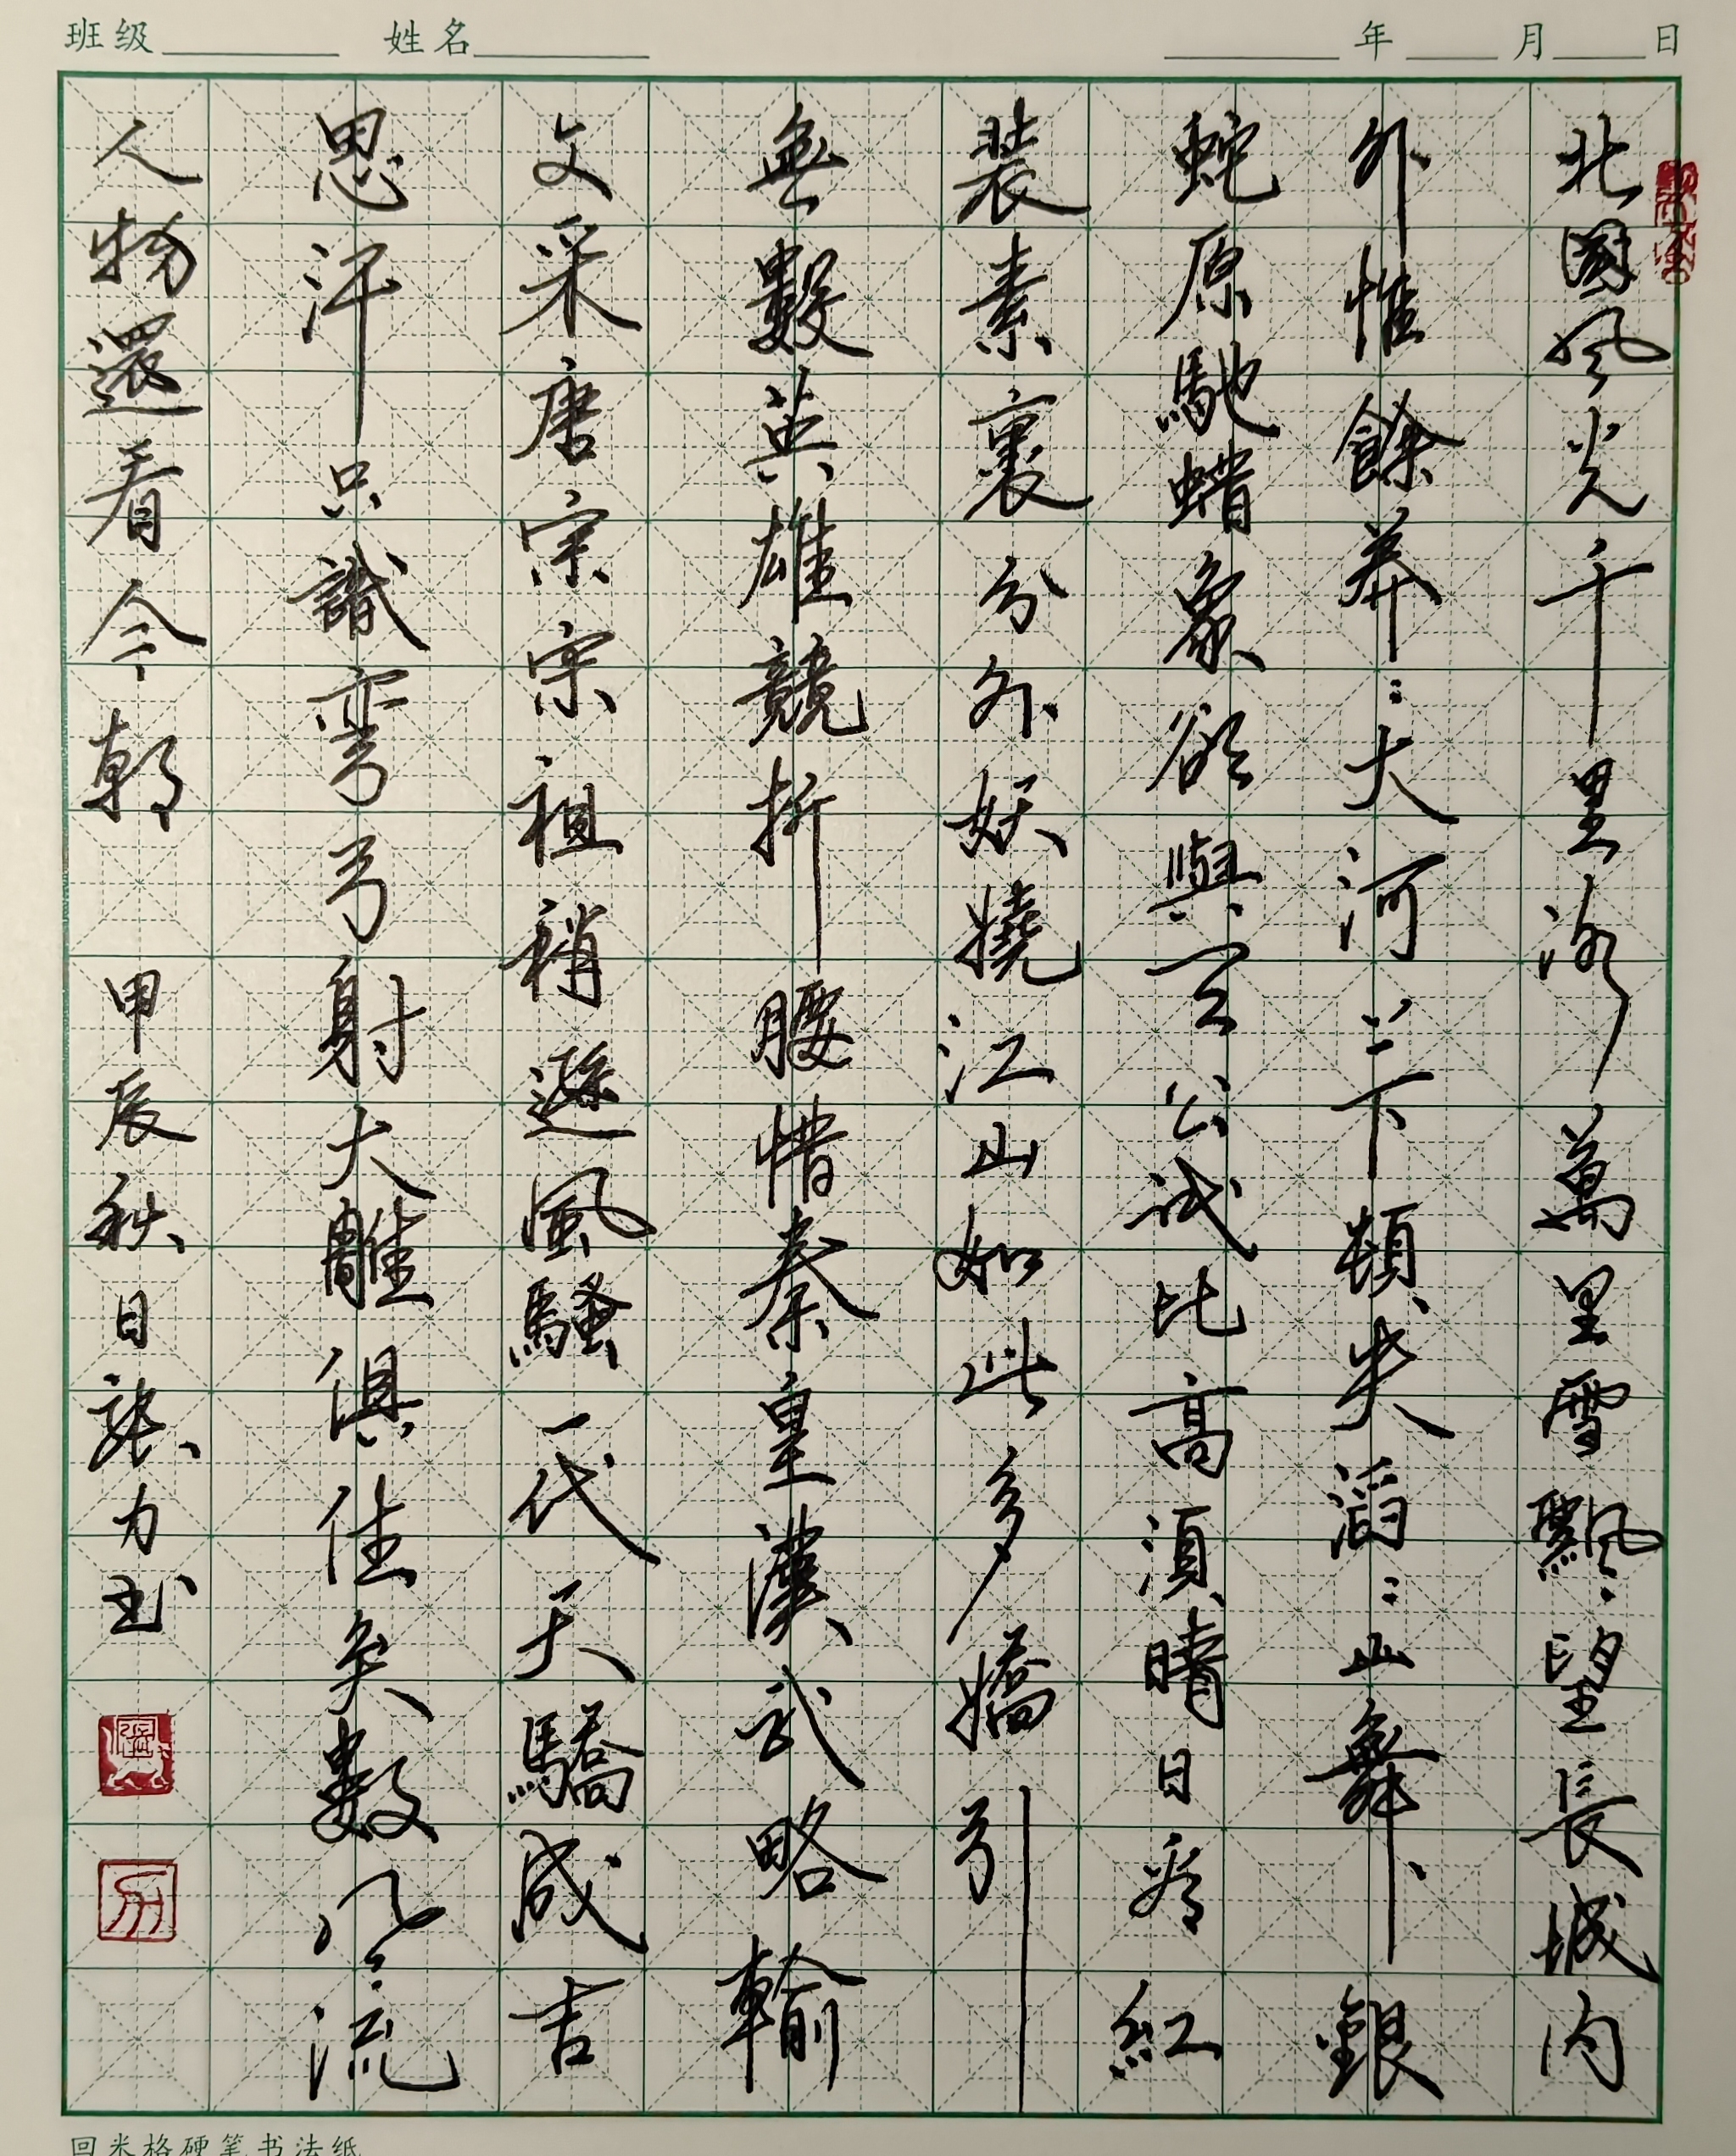 班级 姓名 年 月 日
北國风光千里冰萬里雪飄望長城内
外惟餘莽〻大河上下頓失滔〻山舞銀
蛇原馳蜡象欲與天公試比高須晴日看紅
裝素裹分外妖嬈江山如此多嬌引
無數英雄競折腰惜秦皇漢武略輸
文采唐宗宋祖稍遜風騷一代天驕成吉
思汗只識弯弓射大雕俱往矣數风流
人物還看今朝 甲辰秋日張力书
回米格硬笔书法纸